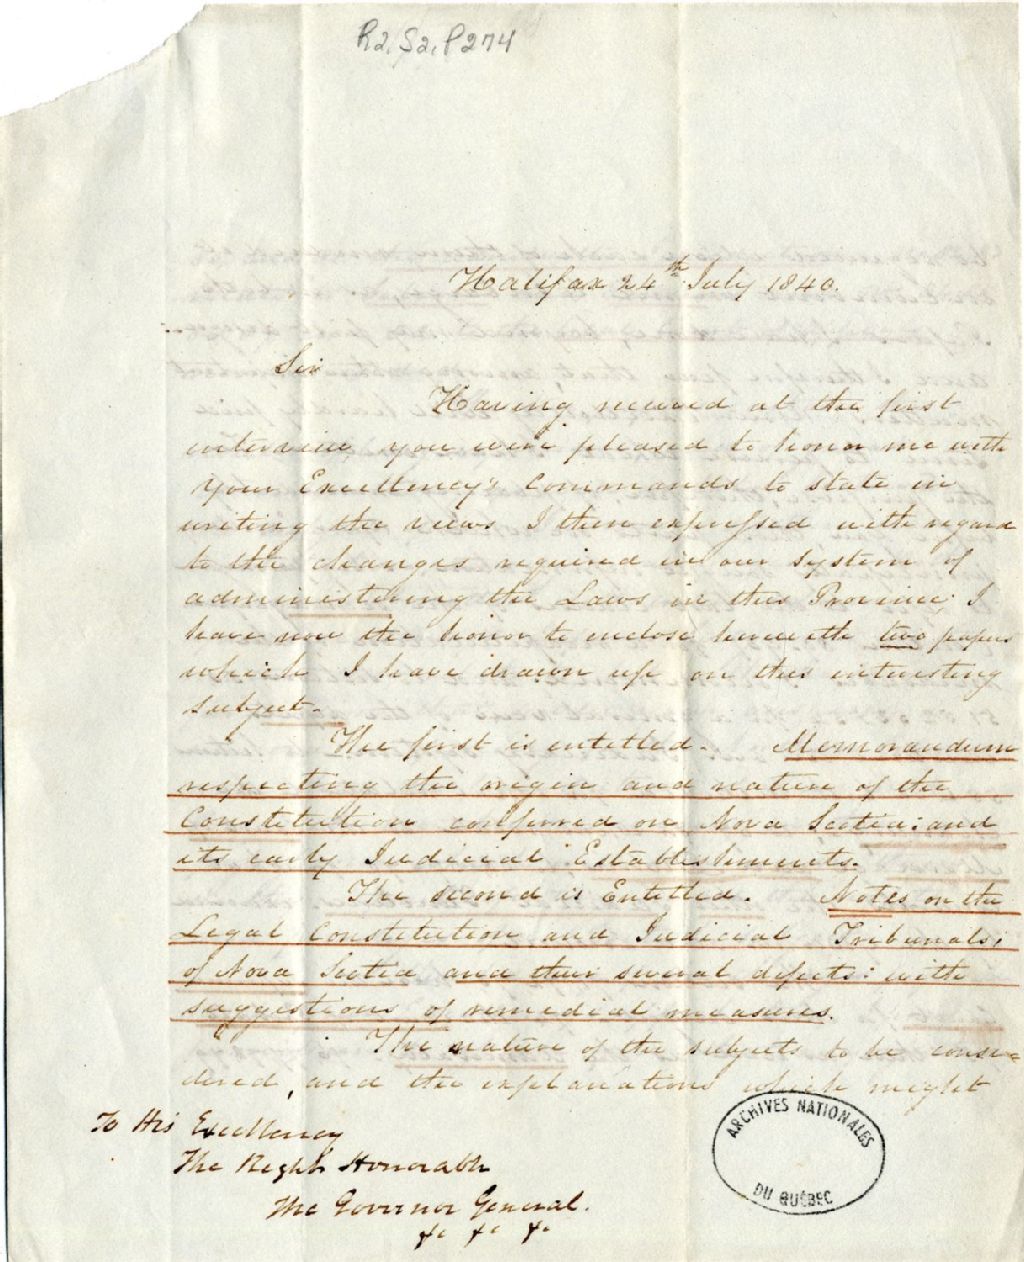 R2, S2, P274
Halifax 24th July 1840.
Sir
Having received at the first
interview you were pleased to honor me with
Your Excellency's Commands to state in
writing the views I then expressed with regard
to the changes required in our system of
administering the Laws in this Province; I
have now the honor to inclose herewith two papers
which I have drawn up on this interesting
subject.
The first is entitled. Memorandum
respecting the origin and nature of the
Constitution conferred on Nova Scotia: and
its early Judicial Establishments.
The second is Entitled. Notes on the
Legal Constitution and Judicial Tribunals;
of Nova Scotia and their several defects: with
suggestions of remedial measures.
The nature of the subjects to be consi=
dered, and the explanations which might
To His Excellency
The Right Honorable
The Governor General.
&c &c &c
ARCHIVES NATIONALES
DU QUÉBEC